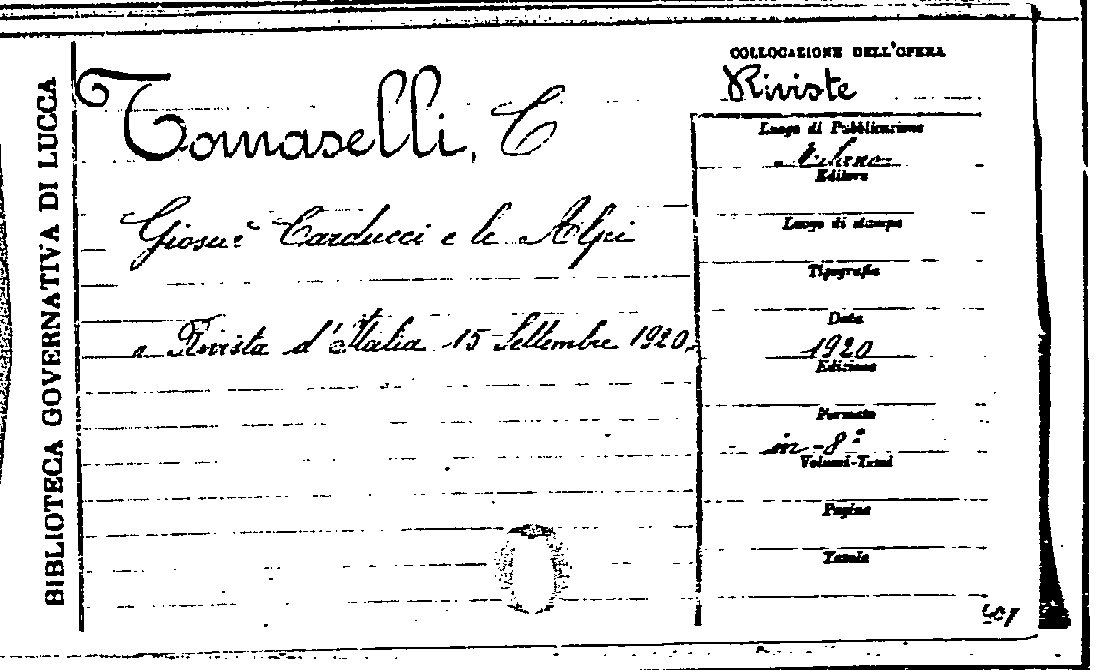 BIBLIOTECA GOVERNATIVA DI LUCCA
Tomaselli, C
Giosuè Carducci e le Alpi
"Rivista d'Italia 15 Settembre 1920.
COLLOCAZIONE DELL'OPERA
Riviste
Luogo di Pubblicazione
Milano
Editore
Luogo di stampa
Tipografia
Data
1920
Edizione
Formato
in-8°
Volumi-Tomi
Pagine
Tavole